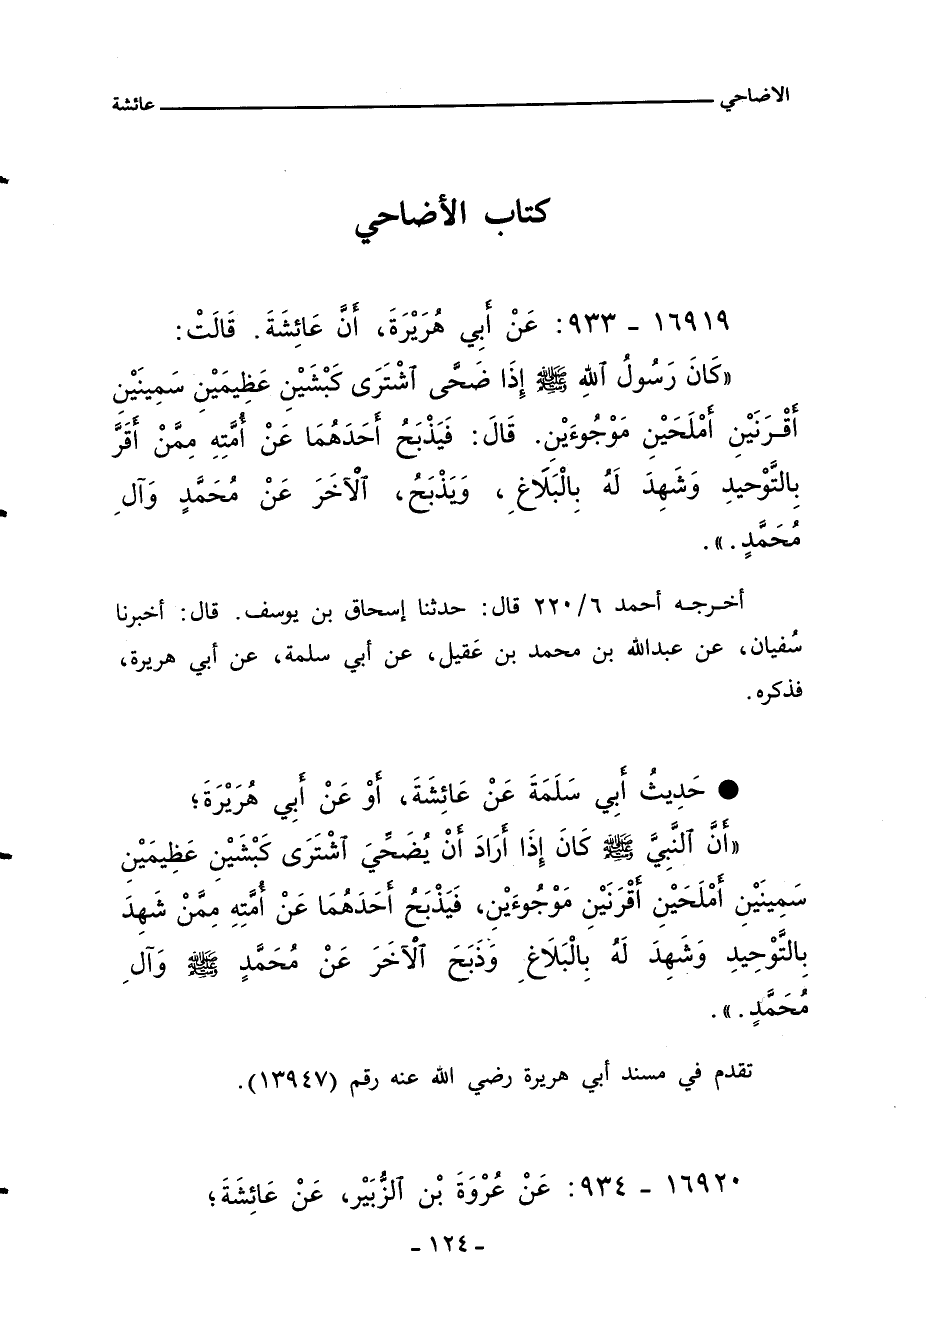 الاضاحي ـــــــــــــ عائشة
كتاب الأضاحي
١٦٩١٩ - ٩٣٣: عَنْ أَبِي هُرَيْرَةَ، أَنَّ عَائِشَةَ. قَالَتْ:
«كَانَ رَسُولُ ٱللهِ ﷺ إِذَا ضَحَّى ٱشْتَرَى كَبْشَيْنِ عَظِيمَيْنِ سَمِينَيْنِ
أَقْـرَنَيْنِ أَمْلَحَيْنِ مَوْجُوءَيْنِ. قَالَ: فَيَذْبَحُ أَحَدَهُمَا عَنْ أُمَّتِهِ مِمَّنْ أَقَرَّ
بِالتَّوْحِيدِ وَشَهِدَ لَهُ بِالْبَلَاغِ، وَيَذْبَحُ، ٱلْآخَرَ عَنْ مُحَمَّدٍ وَآلِ
مُحَمَّدٍ.».
أخـرجـه أحمد ٢٢٠/٦ قال: حدثنا إسحاق بن يوسف. قال: أخبرنا
سُفيان، عن عبدالله بن محمد بن عَقيل، عن أبي سلمة، عن أبي هريرة،
فذكره.
● حَدِيثُ أَبِي سَلَمَةَ عَنْ عَائِشَةَ، أَوْ عَنْ أَبِي هُرَيْرَةَ؛
«أَنَّ ٱلنَّبِيَّ ﷺ كَانَ إِذَا أَرَادَ أَنْ يُضَحِّيَ ٱشْتَرَى كَبْشَيْنِ عَظِيمَيْنِ
سَمِينَيْنِ أَمْلَحَيْنِ أَقْرَنَيْنِ مَوْجُوءَيْنِ، فَيَذْبَحُ أَحَدَهُمَا عَنْ أُمَّتِهِ مِمَّنْ شَهِدَ
بِالتَّوْحِيدِ وَشَهِدَ لَهُ بِالْبَلَاغِ وَذَبَحَ ٱلْآخَرَ عَنْ مُحَمَّدٍ ﷺ وَآلِ
مُحَمَّدٍ.».
تقدم في مسند أبي هريرة رضي الله عنه رقم (١٣٩٤٧).
١٦٩٢٠ - ٩٣٤: عَنْ عُرْوَةَ بْنِ ٱلزُّبَيْرِ، عَنْ عَائِشَةَ؛
- ١٢٤ -